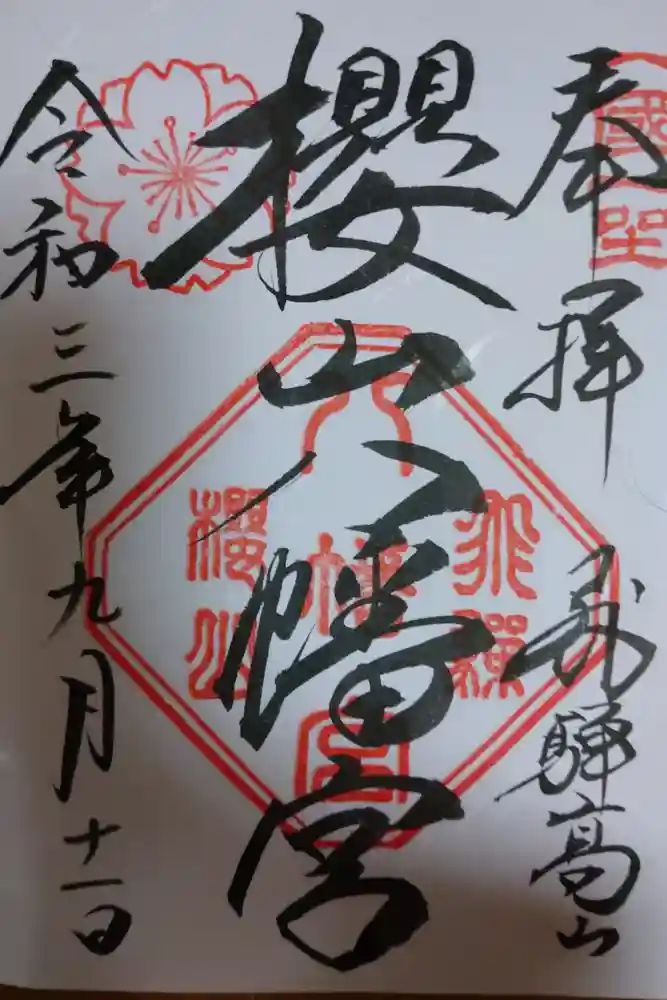 奉拝
飛騨高山
櫻山八幡宮
令和三年九月十一日
飛騨
八幡宮
櫻山